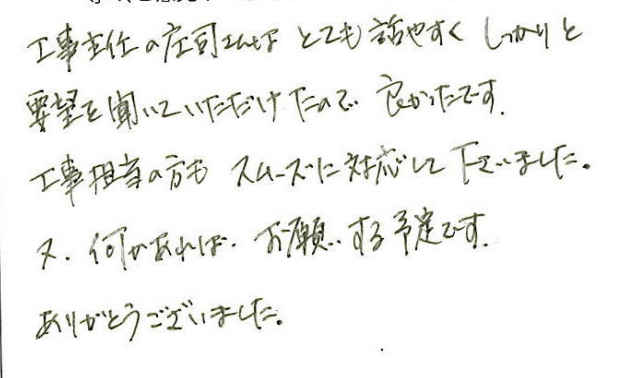 工事主任の庄司さんは とても話やすく しっかりと
要望を聞いていただけたので 良かったです.
工事担当の方も スムーズに対応して下さいました。
又. 何かあれば. お願いする予定です.
ありがとうございました。